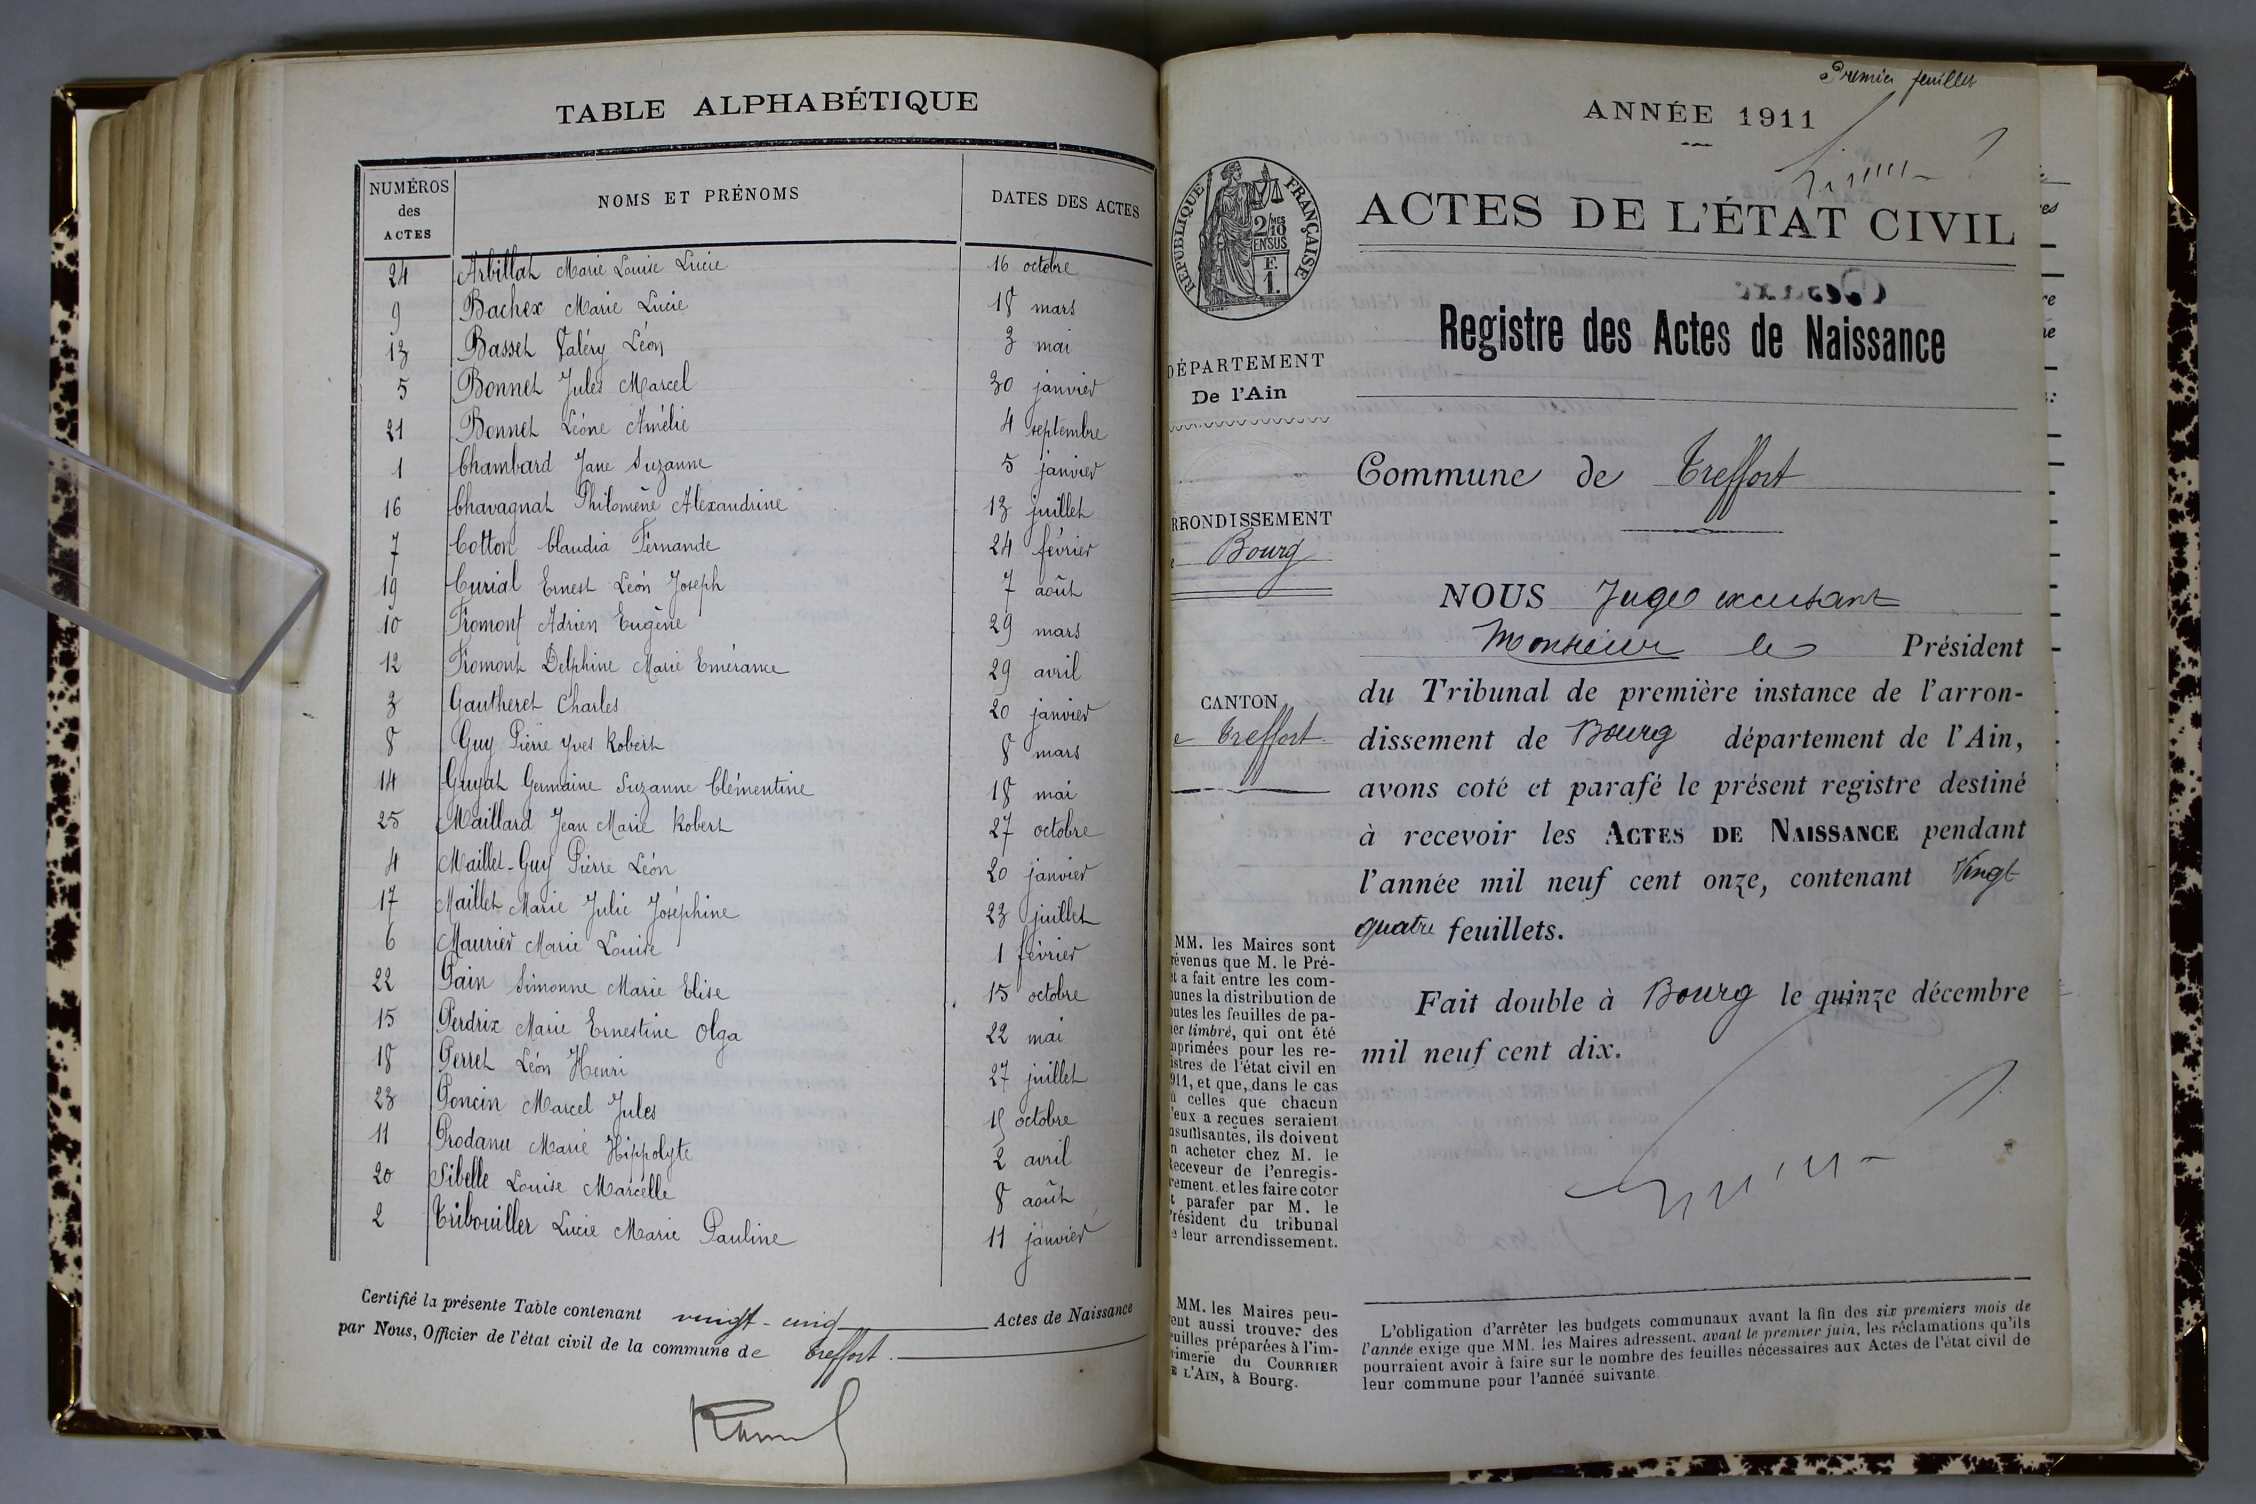 TABLE ALPHABÉTIQUE
NUMÉROS des ACTES NOMS ET PRÉNOMS DATES DES ACTES
24 Arbillat Marie Louise Lucie 16 octobre
9 Bachex Marie Lucie 18 mars
13 Basset Valéry Léon 3 mai
5 Bonnet Jules Marcel 30 janvier
21 Bonnet Léone Amélie 4 septembre
1 Chambard Jane Suzanne 5 janvier
16 Chavagnat Philomène Alexandrine 13 juillet
7 Cotton Claudia Fernande 24 février
19 Curial Ernest Léon Joseph 7 août
10 Fromont Adrien Eugène 29 mars
12 Fromont Delphine Marie Emérance 29 avril
3 Gautheret Charles 20 janvier
8 Guy Pierre Yves Robert 8 mars
14 Guyat Germaine Suzanne Clémentine 18 mai
25 Maillard Jean Marie Robert 27 octobre
4 Maillet-Guy Pierre Léon 20 janvier
17 Maillet Marie Julie Joséphine 23 juillet
6 Maurier Marie Louise 1 février
22 Pain Simonne Marie Elise 15 octobre
15 Perdrix Marie Ernestine Olga 22 mai
18 Perret Léon Henri 27 juillet
23 Poncin Marcel Jules 15 octobre
11 Prodanu Marie Hippolyte 2 avril
20 Sibelle Louise Marcelle 8 août
2 Tribouiller Lucie Marie Pauline 11 janvier
Certifié la présente Table contenant vingt-cinq Actes de Naissance
par Nous, Officier de l'état civil de la commune de Treffort.
Premier feuillet
ANNÉE 1911
ACTES DE L'ÉTAT CIVIL
Registre des Actes de Naissance
RÉPUBLIQUE FRANÇAISE
2/10 MES
EN SUS
F.
1.
DÉPARTEMENT
De l'Ain
RRONDISSEMENT
Bourg
CANTON
Treffort
Commune de Treffort
NOUS Juge excusant
Monsieur le Président
du Tribunal de première instance de l'arron-
dissement de Bourg département de l'Ain,
avons coté et parafé le présent registre destiné
à recevoir les ACTES DE NAISSANCE pendant
l'année mil neuf cent onze, contenant Vingt
quatre feuillets.
Fait double à Bourg le quinze décembre
mil neuf cent dix.
MM. les Maires sont
révenus que M. le Pré-
t a fait entre les com-
unes la distribution de
utes les feuilles de pa-
er timbré, qui ont été
mprimées pour les re-
istres de l'état civil en
911, et que, dans le cas
ù celles que chacun
'eux a reçues seraient
nsuffisantes, ils doivent
n acheter chez M. le
Receveur de l'enregis-
rement et les faire coter
t parafer par M. le
Président du tribunal
e leur arrondissement.
MM. les Maires peu-
ent aussi trouver des
euilles préparées à l'im-
rimerie du COURRIER
E L'AIN, à Bourg.
L'obligation d'arrêter les budgets communaux avant la fin des six premiers mois de
l'année exige que MM. les Maires adressent, avant le premier juin, les réclamations qu'ils
pourraient avoir à faire sur le nombre des feuilles nécessaires aux Actes de l'état civil de
leur commune pour l'année suivante.